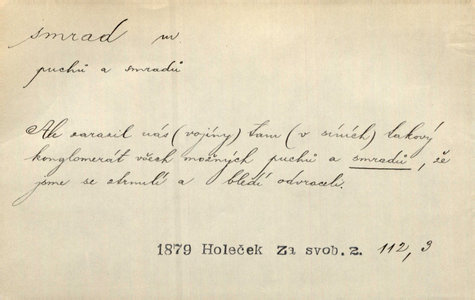 smrad m
puchů a smradů
Ale zarazil nás (vojíny) tam (v síních) takový
konglomerát všech možných puchů a smradů, že
jsme se strnulí a bledí odvraceli.
1879 Holeček Za svob. 2. 112, 3